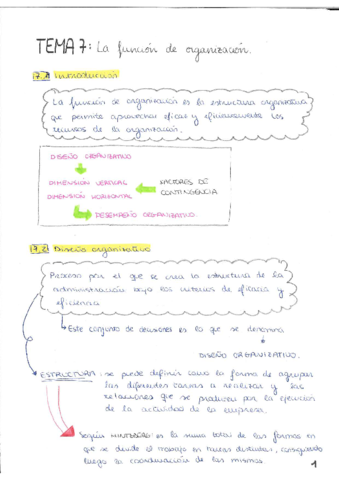 TEMA 7: La función de organización.
7.1 Introducción
La función de organización es la estructura organizativa
que permite aprovechar eficaz y eficientemente los
recursos de la organización.
DISEÑO ORGANIZATIVO
DIMENSION VERTICAL
DIMENSION HORIZONTAL
FACTORES DE
CONTINGENCIA
DESEMPEÑO ORGANIZATIVO
7.2 Diseño organizativo
Proceso por el que se crea la estructura de la
administración bajo los criterios de eficacia y
eficiencia
Este conjunto de decisiones es lo que se denomina
DISEÑO ORGANIZATIVO.
ESTRUCTURA: se puede definir como la forma de agrupar
las diferentes tareas a realizar y las
relaciones que se producen por la ejecución
de la actividad de la empresa.
Según MINTZBERG es la suma total de las formas en
que se divide el trabajo en tareas distintas, consiguiendo
luego la coordinación de las mismas
1